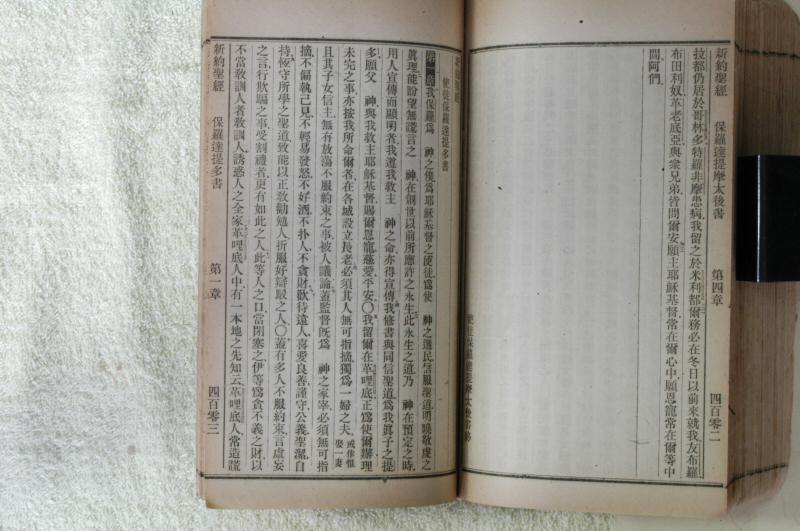 新約聖經 保羅達提摩太後書 第四章 四百零二
拉都仍居於哥林多特羅非摩患病我留之於米利都爾務必在冬日以前來就我友布羅
布田利奴革老底亞與衆兄弟皆問爾安願主耶穌基督常在爾心中願恩寵常在爾等中
間阿們
使徒保羅達提多書
第一章我保羅爲 神之僕爲耶穌基督之使徒爲使 神之選民信服聖道明曉敬虔之
眞理能盼望無謊言之 神在創世以前所應許之永生此永生之道乃 神在預定之時
用人宣傳而顯明者我遵我救主 神之命亦得宣傳我修書與同信聖道爲我眞子之提
多願父 神與我救主耶穌基督賜爾恩寵慈愛平安〇我留爾在革哩底正爲使爾辦理
未完之事亦按我所命爾者在各城設立長老必須其人無可指摘獨爲一婦之夫或作惟娶一妻
且其子女信主無有放蕩不服約束之事被人議論蓋監督旣爲 神之家宰必須無可指
摘不偏執己見不輕易發怒不好酒不扑人不貪財欵待遠人喜愛良善謹守公義聖潔自
持恆守所學之聖道致能以正敎勸勉人折服好辯駁之人〇蓋有多人不服約束言虛妄
之言行欺騙之事受割禮者更有如此之人此等人之口當閉塞之伊等爲貪不義之財以
不當敎訓人者敎訓人誘惑人之全家革哩底人中有一本地之先知云革哩底人常造謊
新約聖經 保羅達提多書 第一章 四百零三